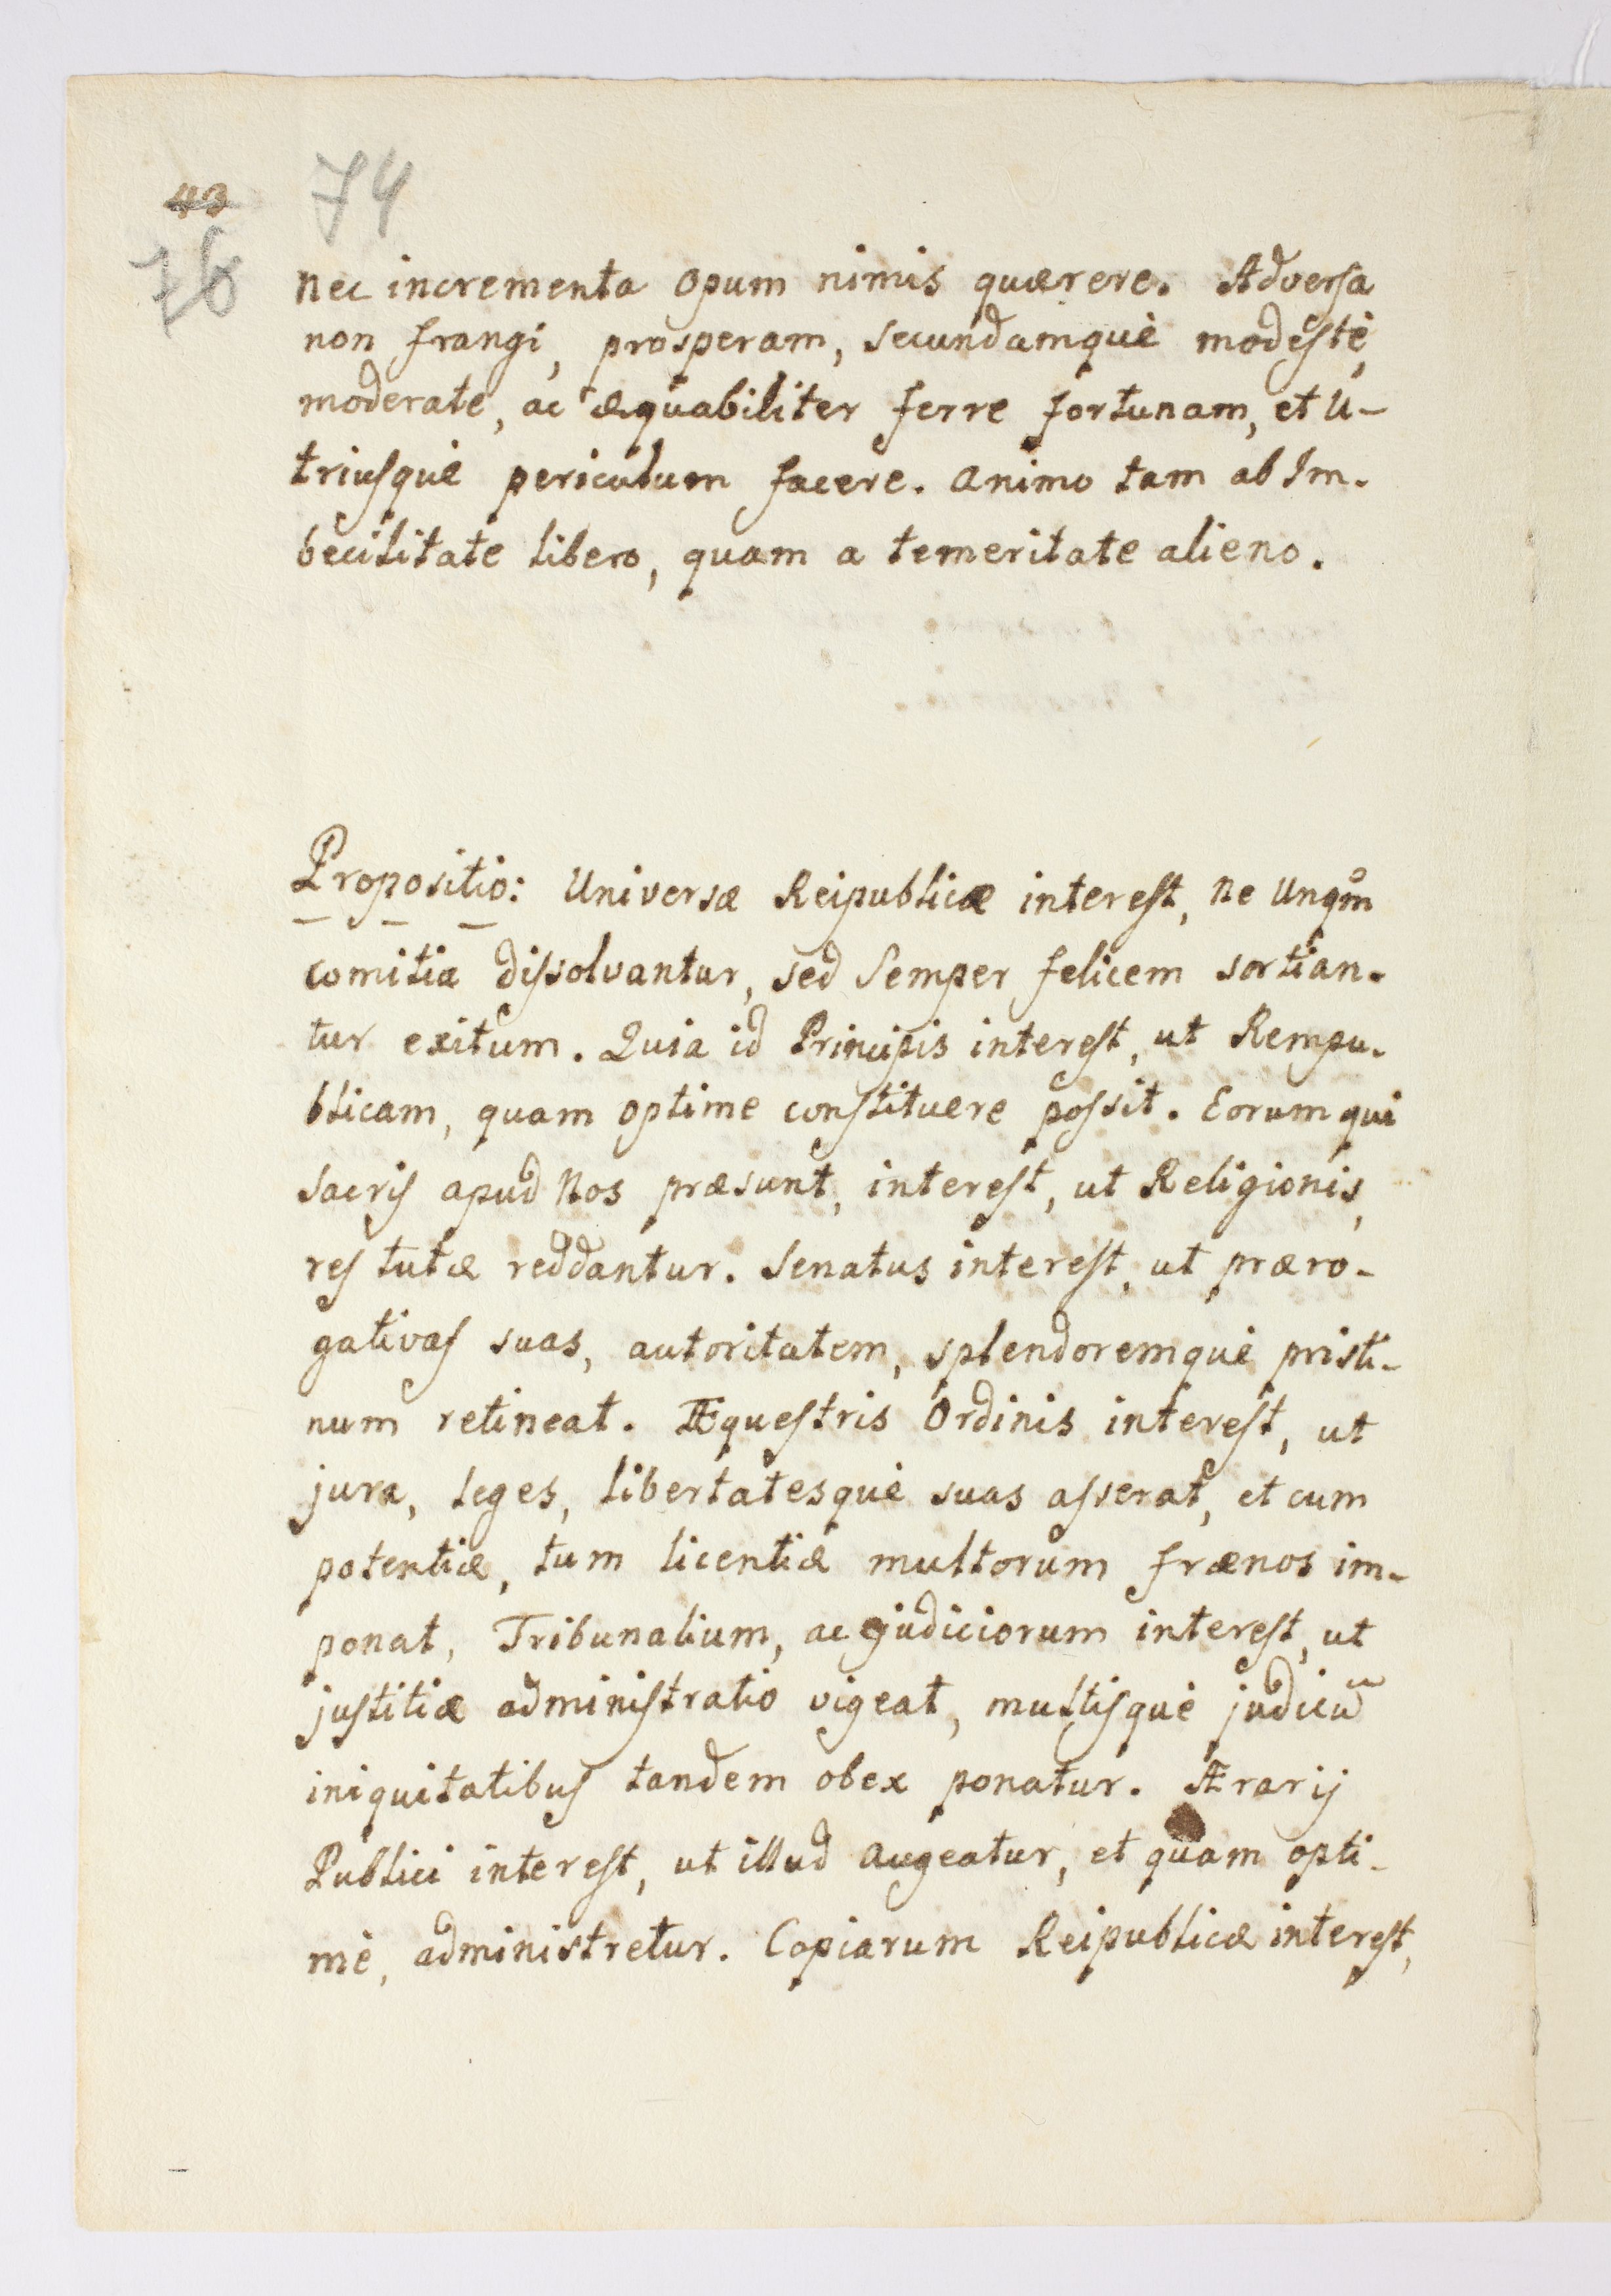 43
74
76
nec incrementa opum nimis quærere. Adversa
non frangi, prosperam, secundamquè modestè,
moderate, ac æquabiliter ferre fortunam, et u-
triusquè periculum facere. animo tam ab Im-
becilitate libero, quam a temeritate alieno.
Propositio: Universæ Reipublicæ interest, ne Unqm̃
comitia dissolvantur, sed Semper felicem sortian-
tur exitum. Quia id Principis interest, ut Rempu-
blicam, quam optime constituere possit. Eorum qui
sacris apud Nos præsunt, interest, ut Religionis,
res tutæ reddantur. Senatus interest, ut præro-
gativas suas, autoritatem, splendoremquè pristi-
num retineat. Æquestris Ordinis interest, ut
jura, leges, libertatesquè suas asserat, et cum
potentiæ, tum licentiæ multorum frænos im-
ponat, Tribunalium, ac judiciorum interest, ut
justitiæ administratio vigeat, multisquè judicũ
iniquitatibus tandem obex ponatur. Ærarij
Publici interest, ut illud augeatur, et quam opti-
mè, administretur. Copiarum Reipublicæ interest,